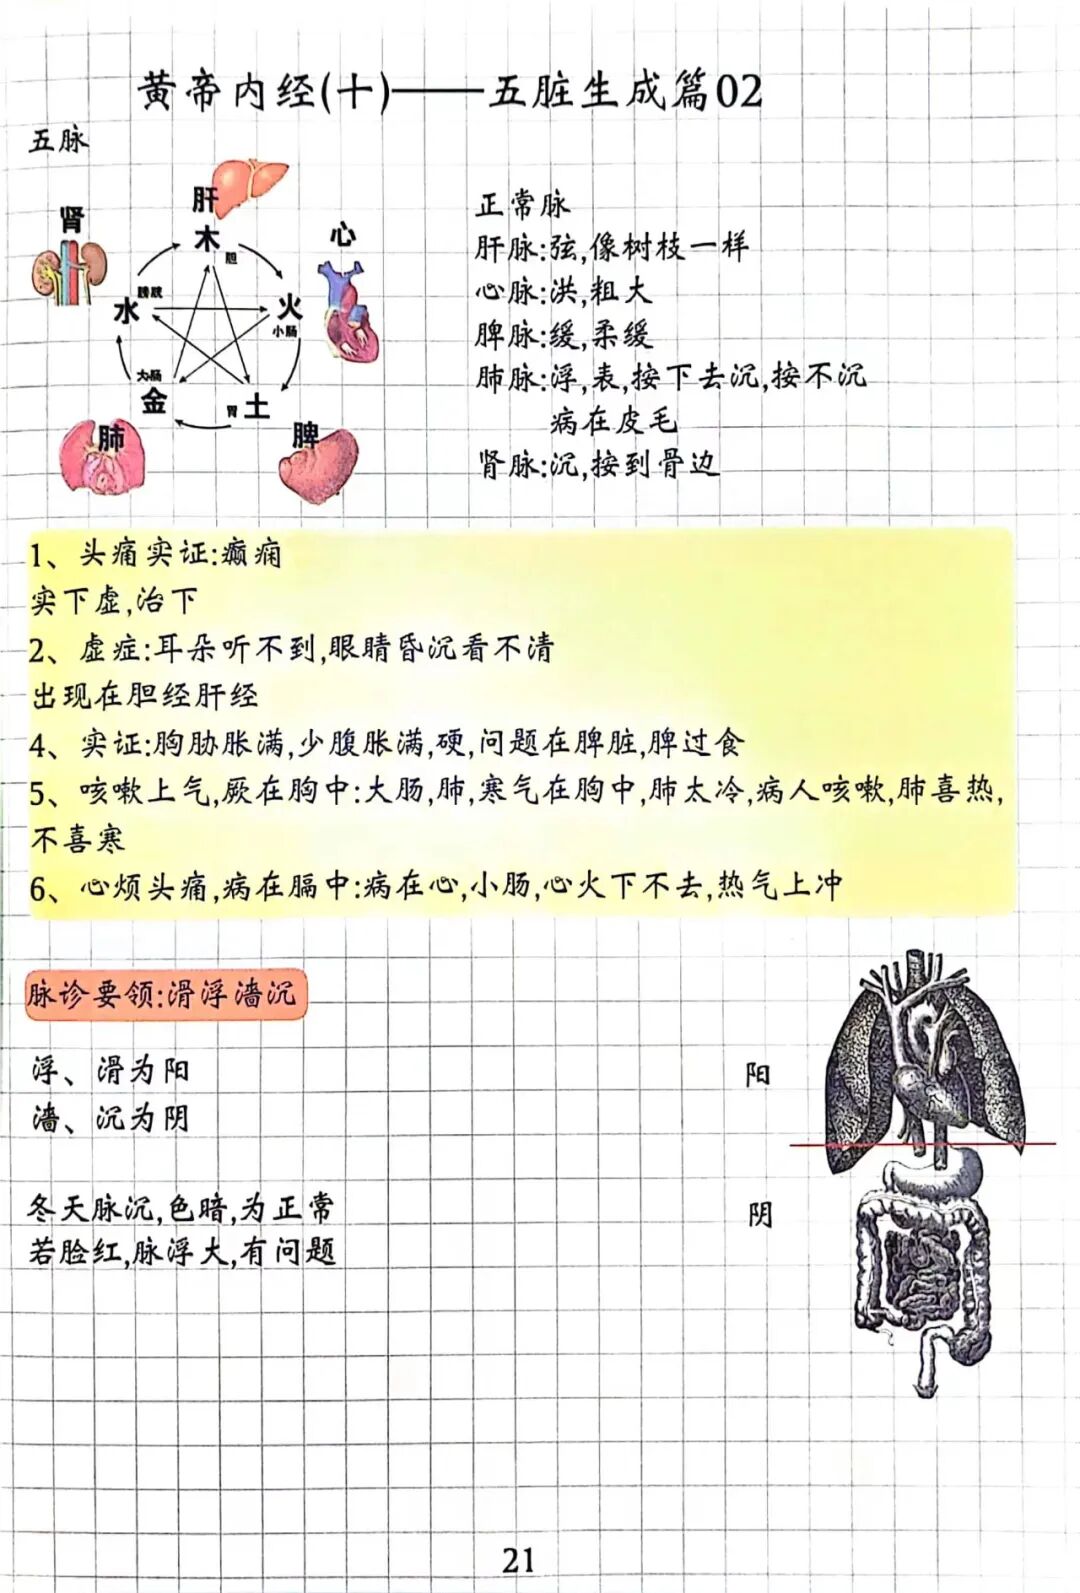 黄帝内经(十)——五脏生成篇02
五脉
肝
木
胆
心
火
小肠
脾
土
胃
肺
金
大肠
肾
水
膀胱
正常脉
肝脉:弦,像树枝一样
心脉:洪,粗大
脾脉:缓,柔缓
肺脉:浮,表,按下去沉,按不沉
病在皮毛
肾脉:沉,按到骨边
1、头痛实证:癫痫
实下虚,治下
2、虚症:耳朵听不到,眼睛昏沉看不清
出现在胆经肝经
4、实证:胸胁胀满,少腹胀满,硬,问题在脾脏,脾过食
5、咳嗽上气,厥在胸中:大肠,肺,寒气在胸中,肺太冷,病人咳嗽,肺喜热,
不喜寒
6、心烦头痛,病在膈中:病在心,小肠,心火下不去,热气上冲
脉诊要领:滑浮濇沉
浮、滑为阳
濇、沉为阴
冬天脉沉,色暗,为正常
若脸红,脉浮大,有问题
阳
阴
21